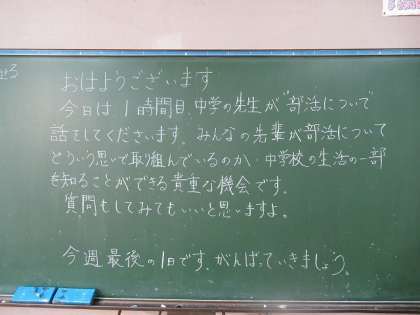 おはようございます
今日は1時間目、中学の先生が"部活について"
話をしてくださいます。みんなの先輩が部活について
どういう思いで取り組んでいるのか、中学校の生活の一部
を知ることができる貴重な機会です。
質問もしてみてもいいと思いますよ。
今週最後の1日です。がんばっていきましょう。